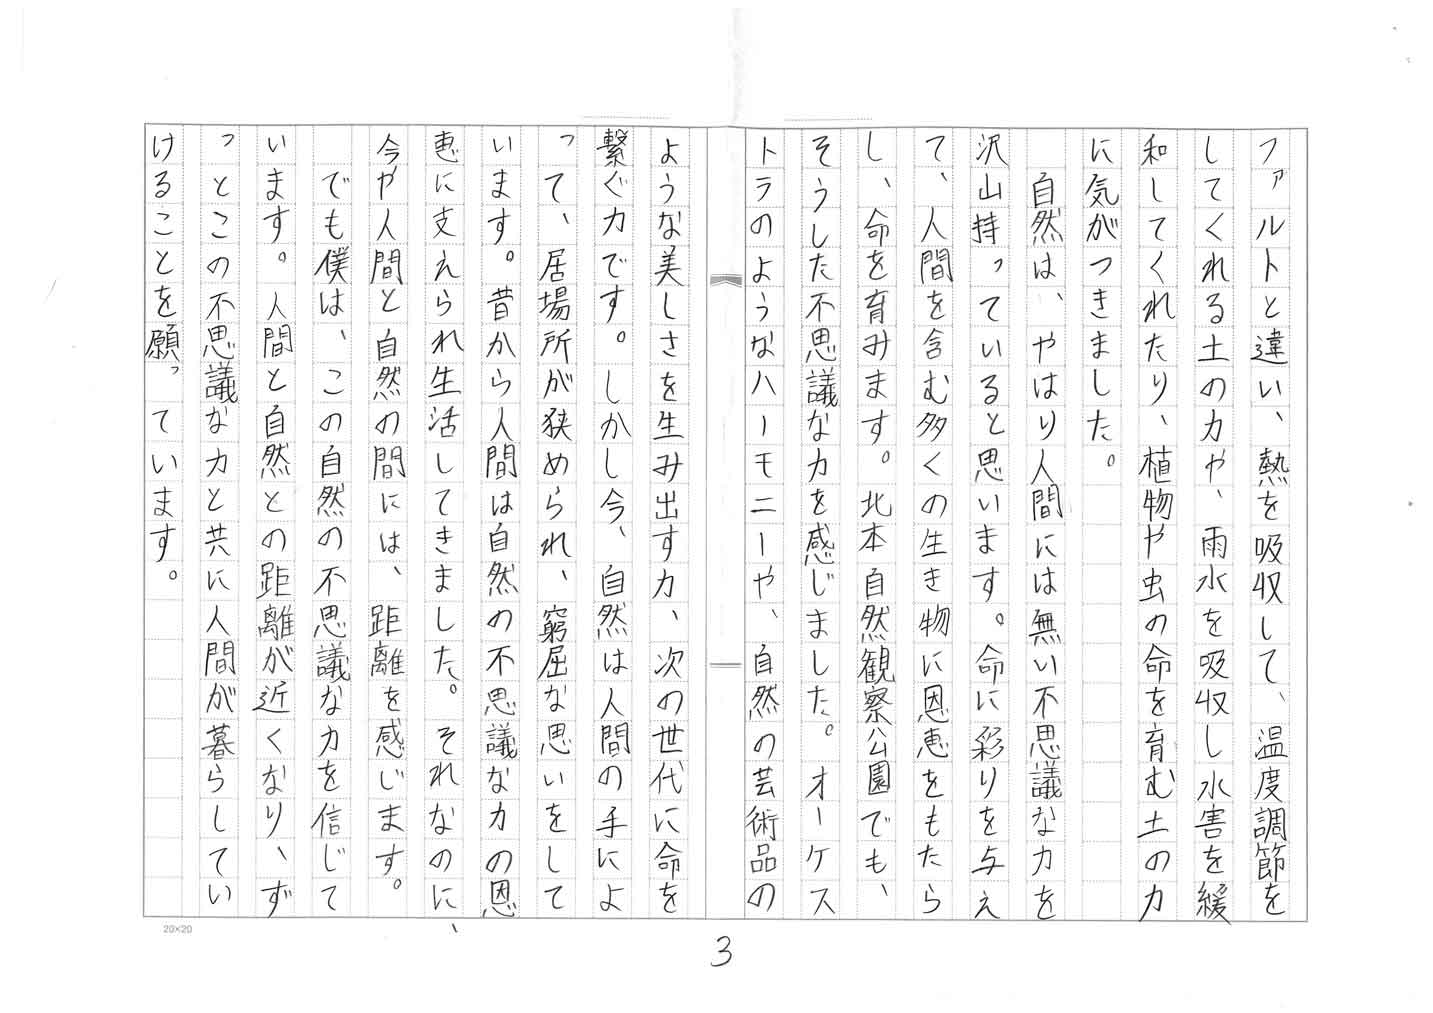 ファルトと違い、熱を吸収して、温度調節を
してくれる土の力や、雨水を吸収し水害を緩
和してくれたり、植物や虫の命を育む土の力
に気がつきました。
自然は、やはり人間には無い不思議な力を
沢山持っていると思います。命に彩りを与え
て、人間を含む多くの生き物に恩恵をもたら
し、命を育みます。北本自然観察公園でも、
そうした不思議な力を感じました。オーケス
トラのようなハーモニーや、自然の芸術品の
ような美しさを生み出す力、次の世代に命を
繋ぐ力です。しかし今、自然は人間の手によ
って、居場所が狭められ、窮屈な思いをして
います。昔から人間は自然の不思議な力の恩
恵に支えられ生活してきました。それなのに、
今や人間と自然の間には、距離を感じます。
でも僕は、この自然の不思議な力を信じて
います。人間と自然との距離が近くなり、ず
っとこの不思議な力と共に人間が暮らしてい
けることを願っています。
20×20
3